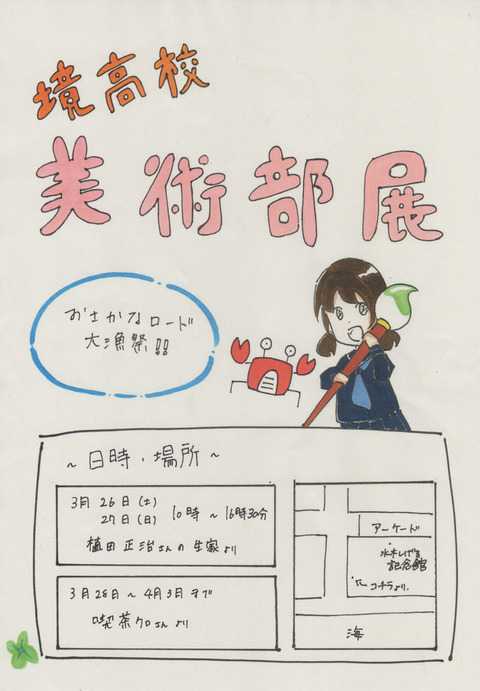 境高校
美術部展
おさかなロード
大漁祭!!
~日時・場所~
3月 26日(土)
27日(日) 10時 ~ 16時30分
植田正治さんの生家より
3月28日 ~ 4月3日まで
喫茶クロさんより
アーケード
水木しげる
記念館
コチラより.
海